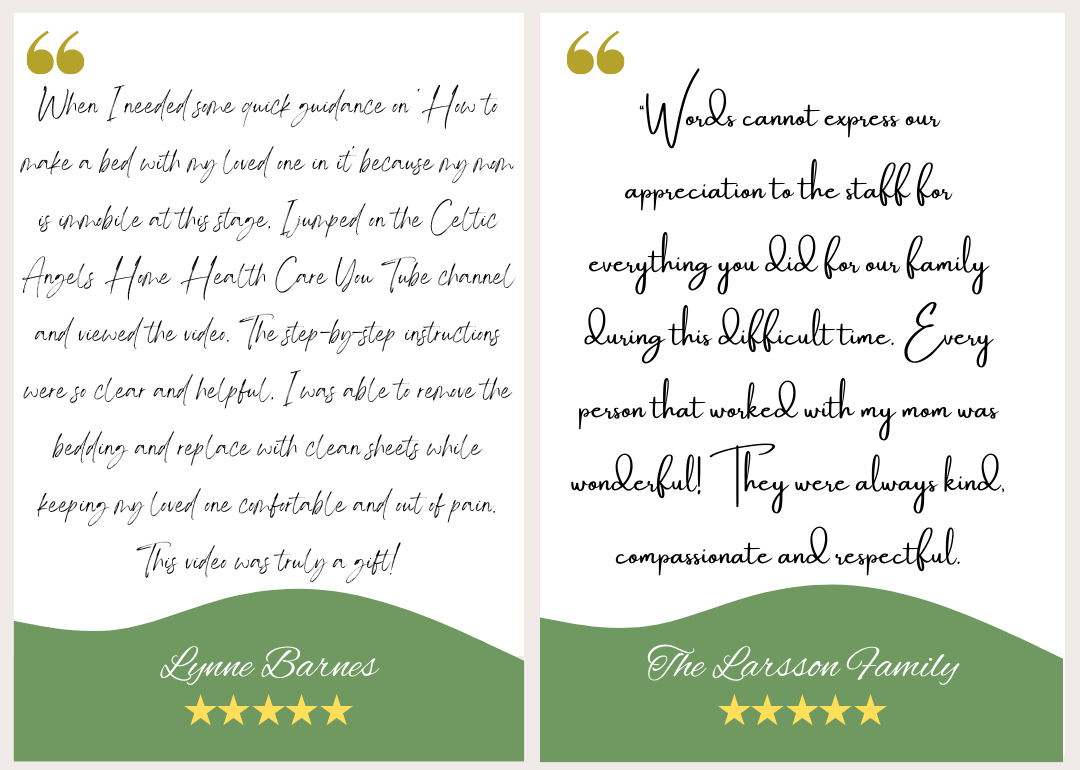 When I needed some quick guidance on 'How to
make a bed with my loved one in it' because my mom
is immobile at this stage, I jumped on the Celtic
Angels Home Health Care You Tube channel
and viewed the video. The step-by-step instructions
were so clear and helpful, I was able to remove the
bedding and replace with clean sheets while
keeping my loved one comfortable and out of pain.
This video was truly a gift!
Lynne Barnes
“Words cannot express our
appreciation to the staff for
everything you did for our family
during this difficult time. Every
person that worked with my mom was
wonderful! They were always kind,
compassionate and respectful.
The Larsson Family